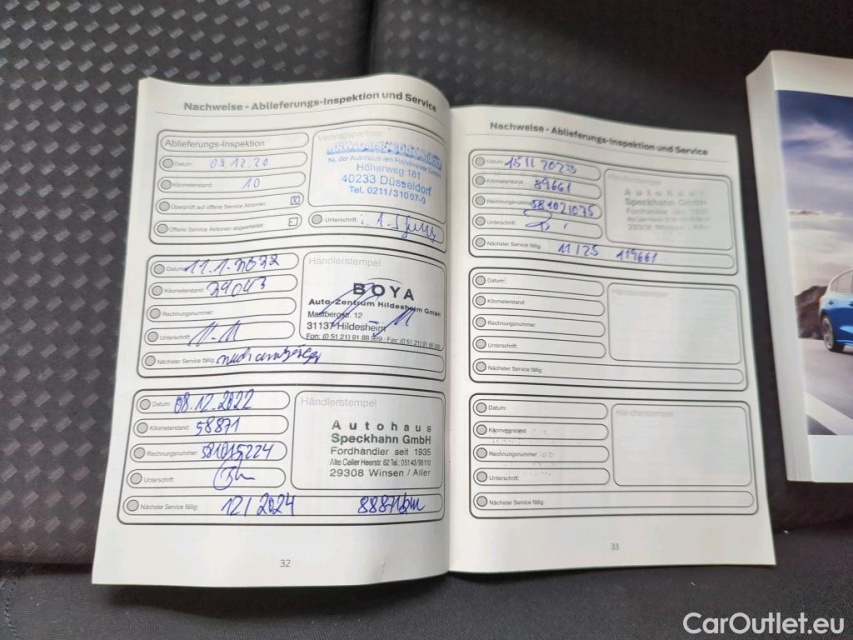 Nachweise - Ablieferungs-Inspektion und Service
Ablieferungs-Inspektion
Datum: 03.12.20
Kilometerstand: 10
Überprüft auf offene Service Aktionen:
Offene Service Aktionen abgearbeitet:
Vertragspartner
NL der Autohaus am Handweiser GmbH
Höherweg 181
40233 Düsseldorf
Tel. 0211/31007-0
Unterschrift:
Datum: 11.1.2022
Kilometerstand:
Rechnungsnummer:
Unterschrift:
Nächster Service fällig: nach anzeige
Händlerstempel
BOYA
Auto-Zentrum Hildesheim GmbH
Mastbergstr. 12
31137 Hildesheim
Datum: 08.12.2022
Kilometerstand: 58871
Rechnungsnummer: 581015224
Unterschrift:
Nächster Service fällig: 12/2024 88871km
Händlerstempel
Autohaus
Speckhahn GmbH
Fordhändler seit 1935
29308 Winsen / Aller
32
Nachweise - Ablieferungs-Inspektion und Service
Datum: 15 11 2023
Kilometerstand: 89661
Rechnungsnummer: 581021075
Unterschrift:
Nächster Service fällig: 11/25 119661
Händlerstempel
Autohaus
Speckhahn GmbH
Fordhändler seit 1935
29308 Winsen / Aller
Datum:
Kilometerstand:
Rechnungsnummer:
Unterschrift:
Nächster Service fällig:
Händlerstempel
Datum:
Kilometerstand:
Rechnungsnummer:
Unterschrift:
Nächster Service fällig:
Händlerstempel
33
CarOutlet.eu